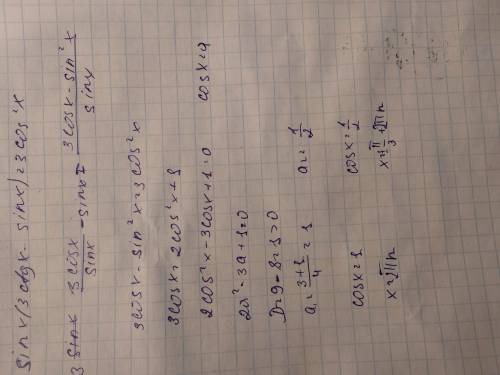 sinx(3ctgx - sinx) = 3cos²x
3 sinx 3cosx/sinx - sinx = (3cosx - sin²x)/sinx
3cosx - sin²x = 3cos²x
3cosx = 2cos²x + 1
2cos²x - 3cosx + 1 = 0 cosx = a
2a² - 3a + 1 = 0
D = 9 - 8 = 1 > 0
a₁ = (3+1)/4 = 1 a₂ = 1/2
cosx = 1 cosx = 1/2
x = 2πn x = ±π/3 + 2πn